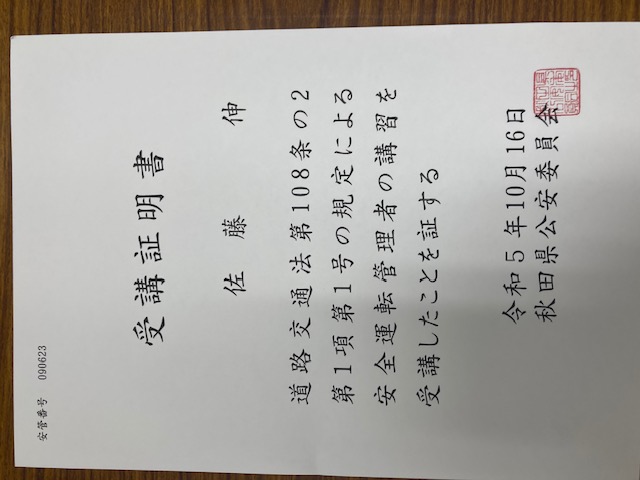 安管番号 090623
受講証明書
佐藤 伸
道路交通法第108条の2
第1項第1号の規定による
安全運転管理者の講習を
受講したことを証する
令和5年10月16日
秋田県公安委員会